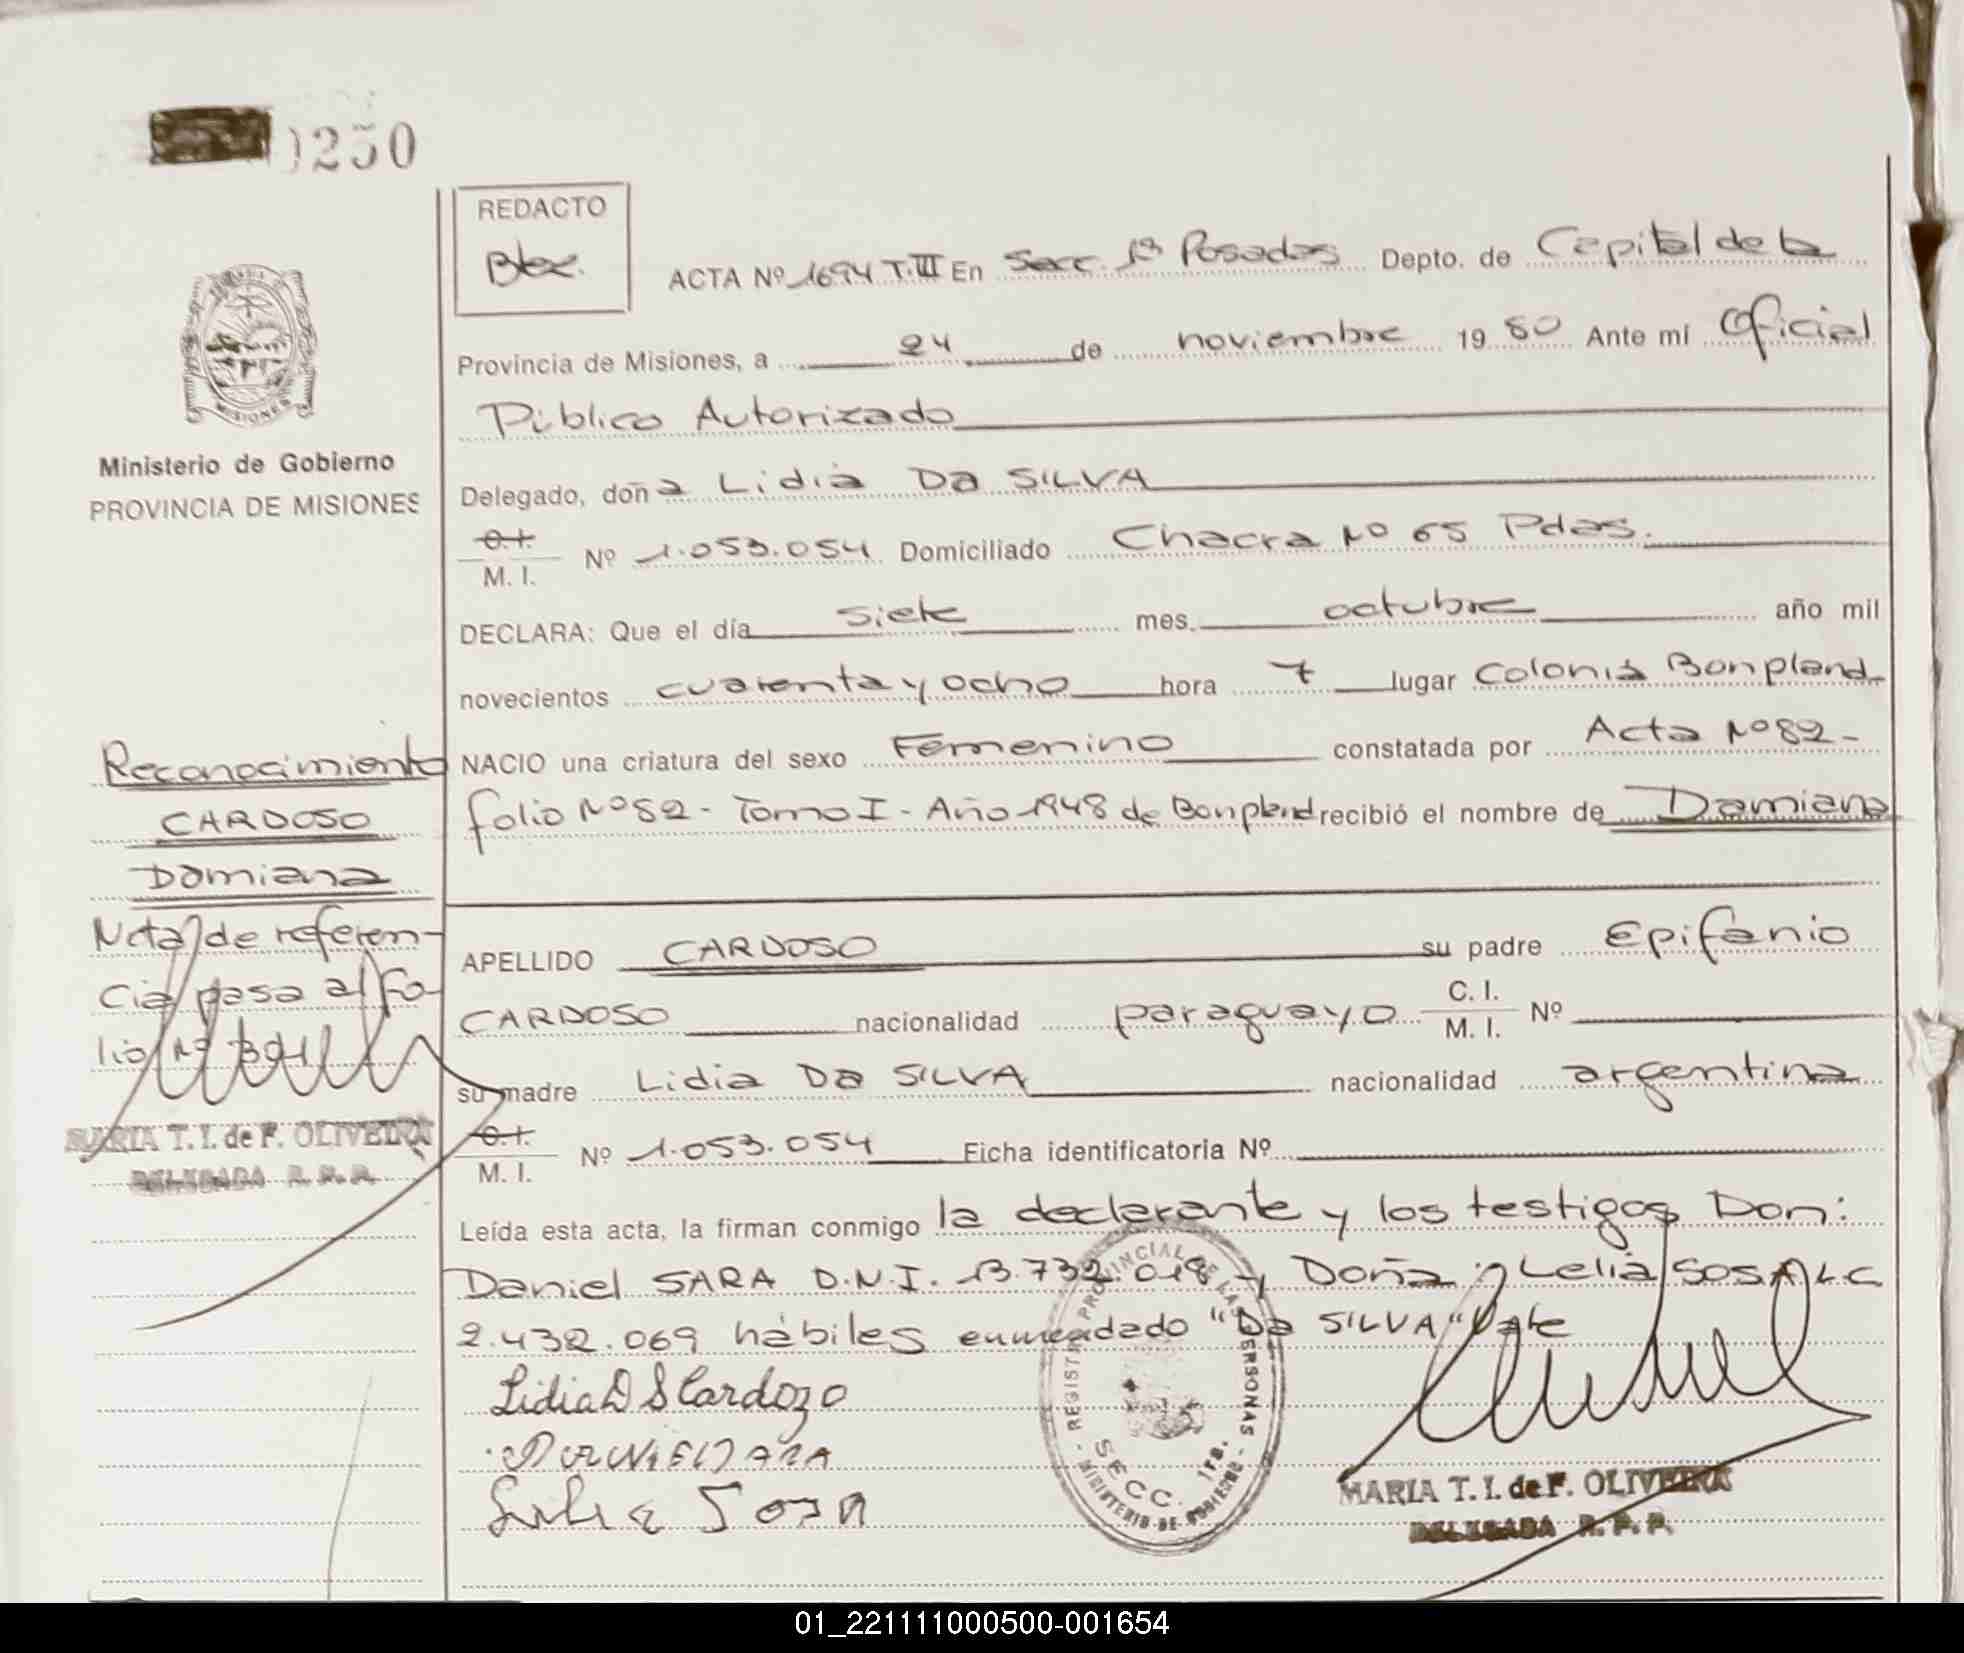 0250
REDACTO
ACTA Nº 1694 T.III En Secc. 1ª Posadas Depto. de Capital de la
Provincia de Misiones, a 24 de noviembre 1980 Ante mí Oficial
Público Autorizado
Delegado, doña Lidia Da SILVA
C.I.
M. I. Nº 1.053.054 Domiciliado Chacra Nº 65 Pdas.
DECLARA: Que el día siete mes. octubre año mil
novecientos cuarenta y ocho hora 7 lugar Colonia Bonpland
NACIO una criatura del sexo Femenino constatada por Acta Nº 82-
folio Nº 82 - Tomo I - Año 1948 de Bonpland recibió el nombre de Damiana
APELLIDO CARDOSO su padre Epifanio
CARDOSO nacionalidad paraguayo C. I.
M. I. Nº
su madre Lidia Da SILVA nacionalidad argentina
C.I.
M. I. Nº 1.053.054 Ficha identificatoria Nº
Leída esta acta, la firman conmigo la declarante y los testigos Don:
Daniel SARA D.N.I. 13.732.018 y Doña Lelia SOSA L.C
2.432.069 hábiles enmendado "Da SILVA" Vale
Lidia D S Cardozo
DANIEL SARA
Lelia Sosa
REGISTRO PROVINCIAL DE LAS PERSONAS
SECC. 1ra.
MINISTERIO DE GOBIERNO
MARIA T. I. de F. OLIVEIRA
DELEGADA R. P. P.
MISIONES
Ministerio de Gobierno
PROVINCIA DE MISIONES
Reconocimiento
CARDOSO
Damiana
Nota de referen-
cia pasa al fo-
lio Nº 301
MARIA T. I. de F. OLIVEIRA
DELEGADA R. P. P.
01_221111000500-001654